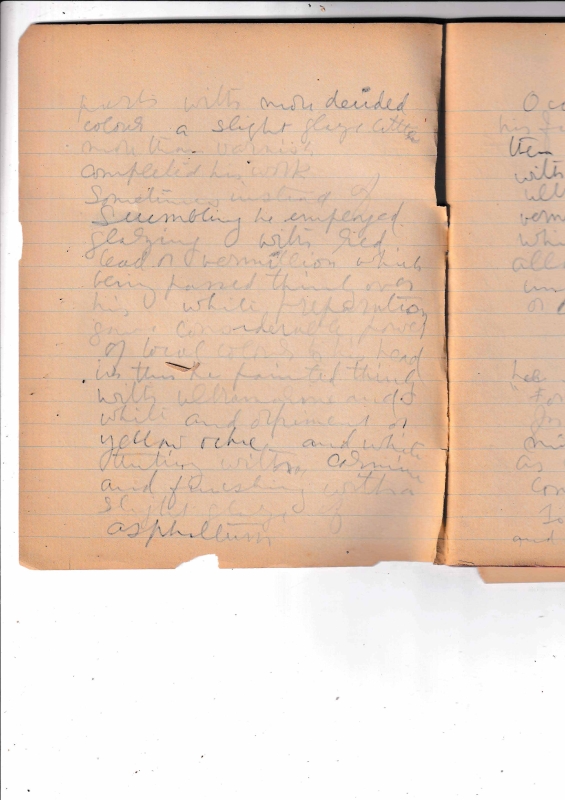 parts with more decided
colour a slight glaze little
more than varnish
completed his work
Sometimes instead of
Scumbling he employed
glazing with Red
lead or vermillion which
being passed thinly over
his white preparation
gave considerable power
of local colour to his head
in this he painted thinly
with ultramarine and
white and orpiment or
yellow ochre and white
tinting with carmine
and finishing with a
slight glaze of
asphaltum
Occ
his
then
with
ult
verm
whi
all
or
he
For
as
Con
and